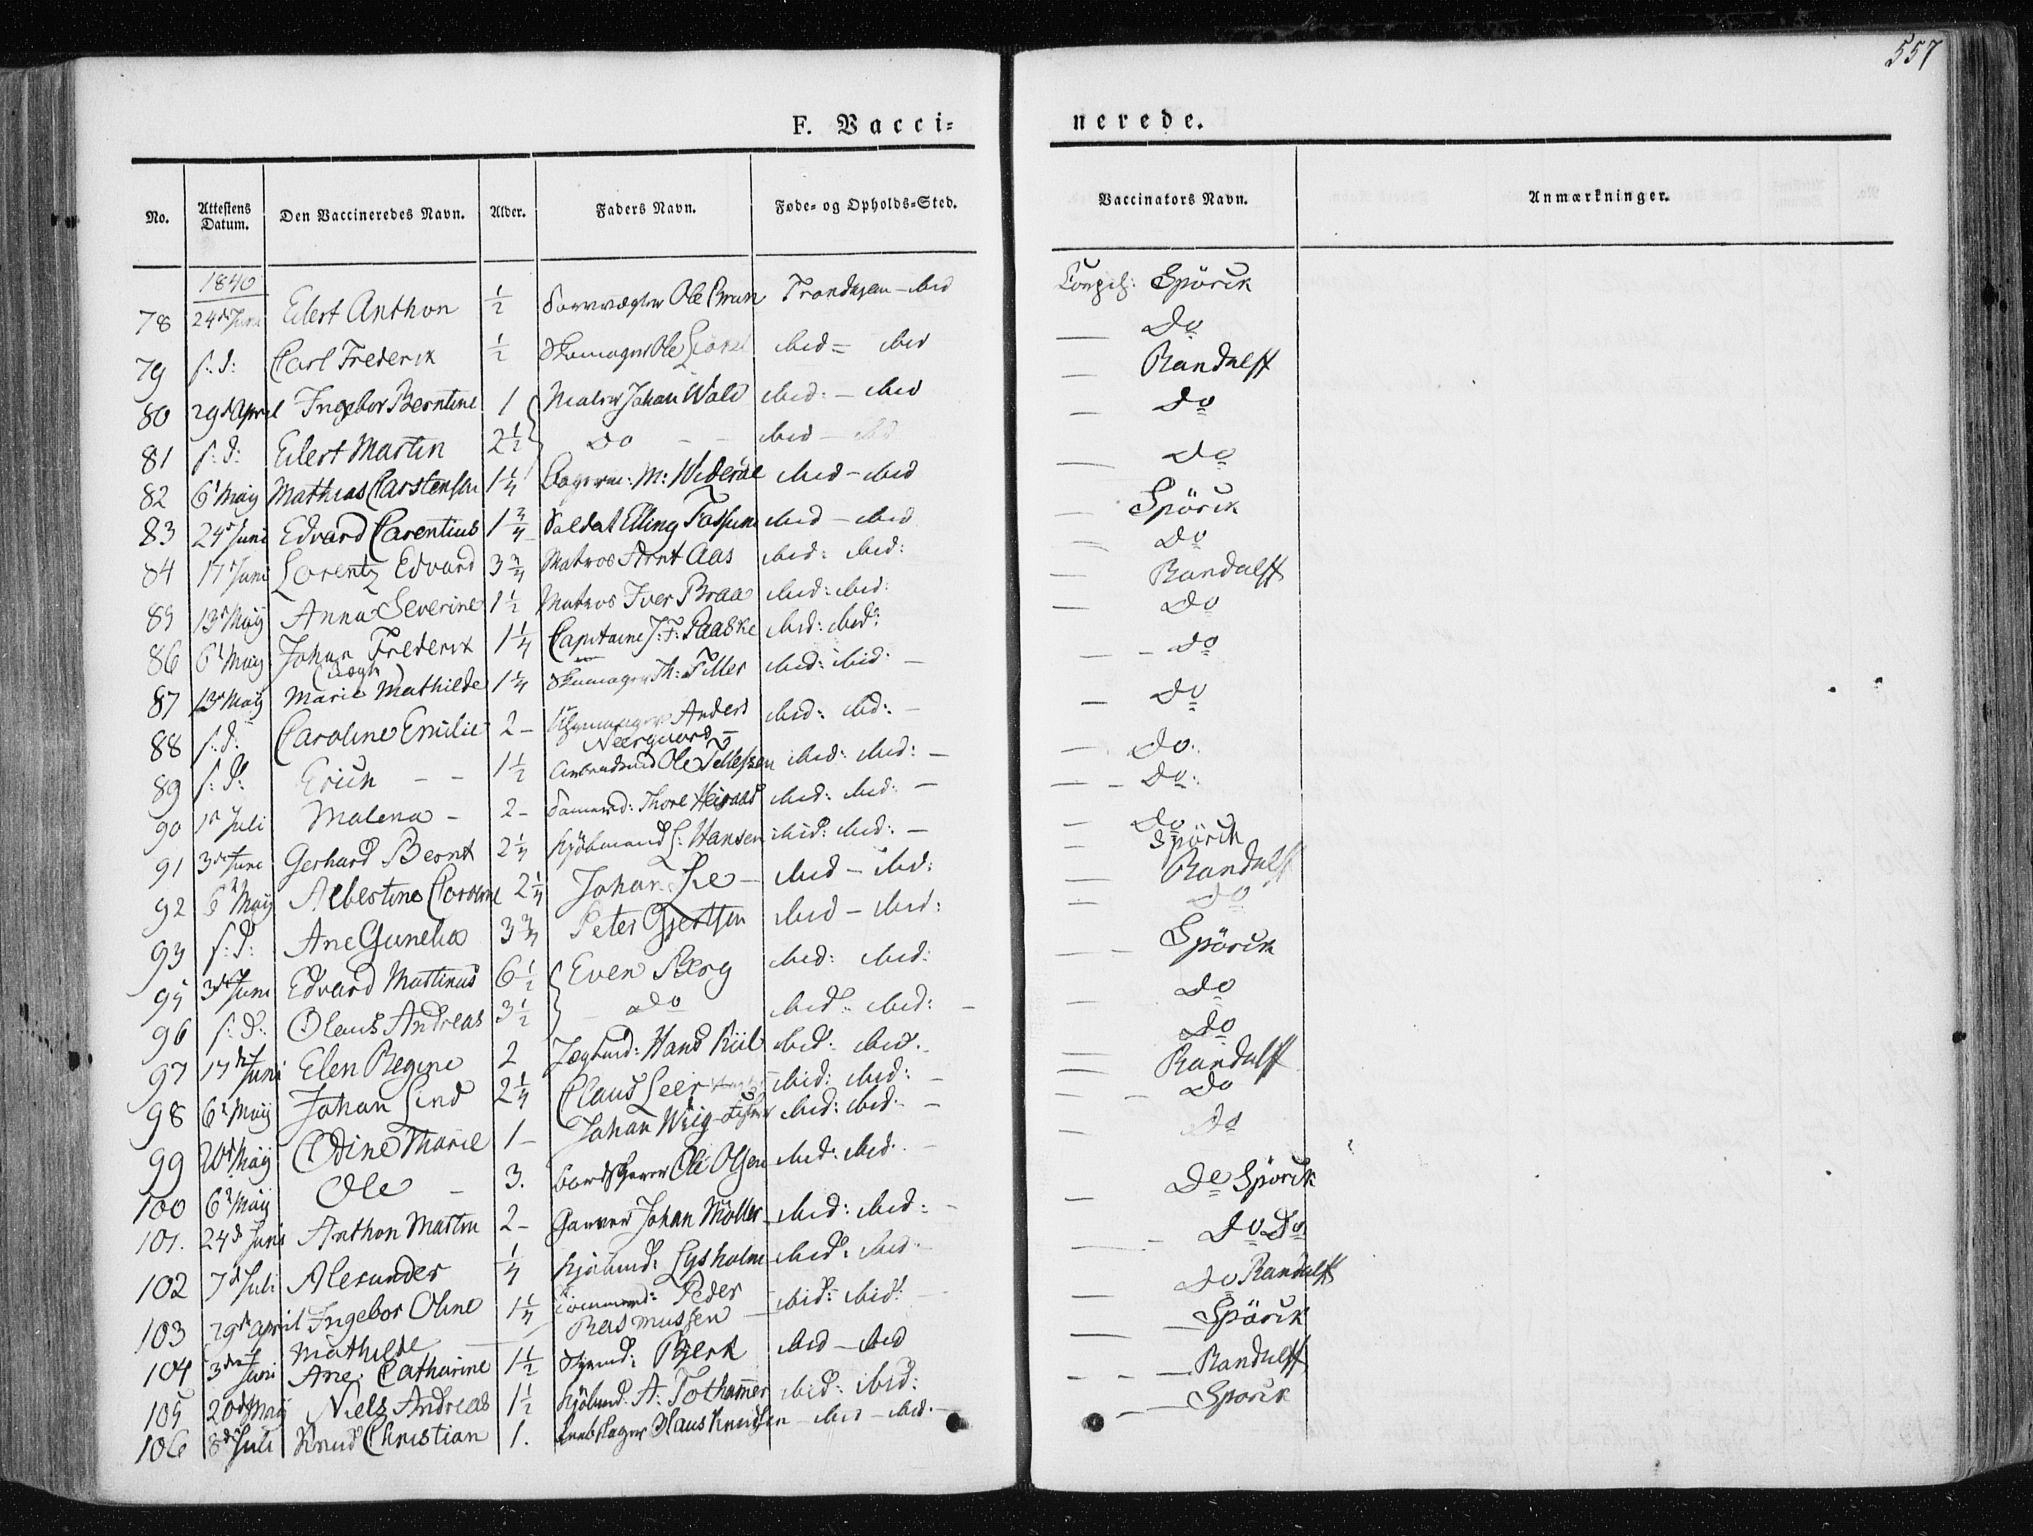 557
F. Vacci= nerede.
No. Attestens Datum. Den Vaccineredes Navn. Alder. Faders Navn. Føde- og Opholds=Sted. Vaccinators Navn. Anmærkninger.
1840
78 24d Juni Eilert Anthon ½ Ole Brun Trondhjem - ibid Spörck
79 s: d: Carl Frederik ½ Skomager Ole ibid = ibid Do
80 29d April Ingebor Berntine 1 Maler Johan Wald ibid: - ibid Randulff
81 s: d: Eilert Martin 2½ Do - - ibid - ibid Do
82 6t May Mathias Carstensen 1¼ M: Wideröe ibid - ibid Do
83 24d Juni Edvard Carentius 1¾ Soldat Elling Fossum ibid - ibid Spörck
84 17d Juni Lorentz Edvard 3¾ Matros Arnt Aas ibid: ibid: Do
85 13d May Anna Severine 1½ Matros Iver Braa ibid: ibid: Randulff
86 6t May Johan Frederik 1¼ Capitaine J: F: Paaske ibid: ibid: Do
87 13d May Marie Mathilde 1¼ Skomager Th: Tiller ibid: ibid: - do
88 s: d: Caroline Emilie 2 - Anders Neergaard - ibid: ibid: - Do
89 s: d: Erich - - 1½ Ole Tellefsen ibid: ibid: - Do:
90 1d Juli Malena - 2 - Thore ibid: ibid: - Do:
91 3de Juni Gerhard Bernt 2¼ Kjöbmand L: Hansen ibid: ibid: - Do Spörck
92 6t May Albertine 2¼ Johan Lie - ibid - ibid: Randulff
93 s: d: Ane Gunelia 3¾ Peter Gjertsen ibid - ibid: do
95 3de Juni Edvard Martinus 6½ Even Berg ibid: ibid: Spörck
96 s: d: Olaus Andreas 3½ Do ibid: ibid: - Do
97 17de Juni Elen Regine 2 Hans Kiil ibid: ibid: Do
98 6t May Johan Lind 2¼ Claus Leer ibid: ibid: - Randulff
99 20d May Odine Marie 1 - Johan Wiig ibid: ibid: - Do
100 6t May Ole - 3. Ole Olsen ibid: ibid. Do
101. 24d Juni Anthon Martin 2 - Garver Johan Möller ibid: ibid: - Do Spörck
102 7d Juli Alexander ¼ Kjöbmd: Lysholm ibid: ibid - Do Do
103 29de April Ingebor Oline Mathilde 1¼ Peder Rasmussen - ibid: ibid: Do Randulff
104 3de Juni Ane Catharine 1½ Bjerk ibid - ibid Spörck
105 20d May Niels Andreas 1½ Kjöbmd: A: ibid: ibid: Randulff
106 8de Juli Knud Christian 1. Knudsen - ibid - ibid. Sporck